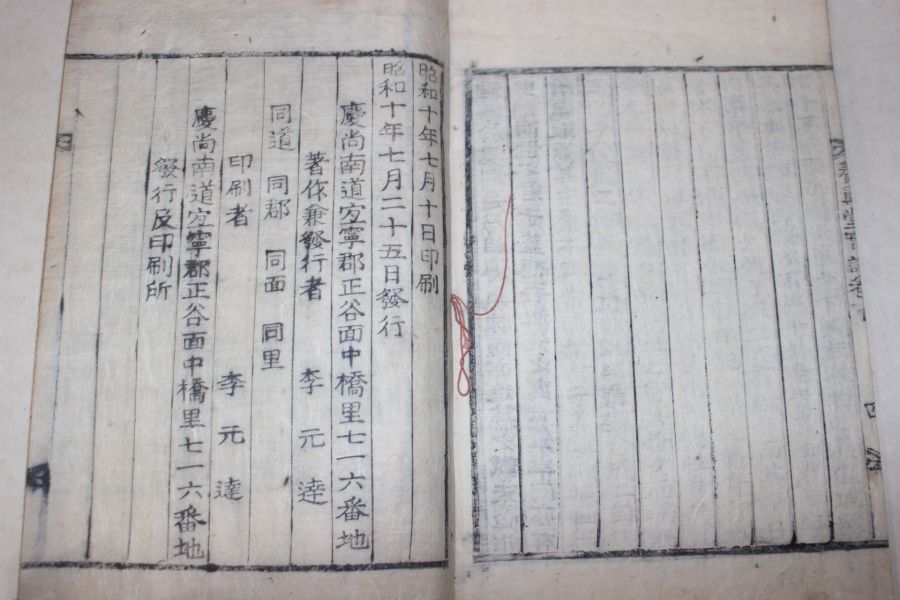 昭和十年七月十日印刷
昭和十年七月二十五日發行
慶尚南道宜寧郡正谷面中橋里七一六番地
著作兼發行者 李元逹
同道 同郡 同面 同里
印刷者 李元逹
慶尚南道宜寧郡正谷面中橋里七一六番地
發行及印刷所